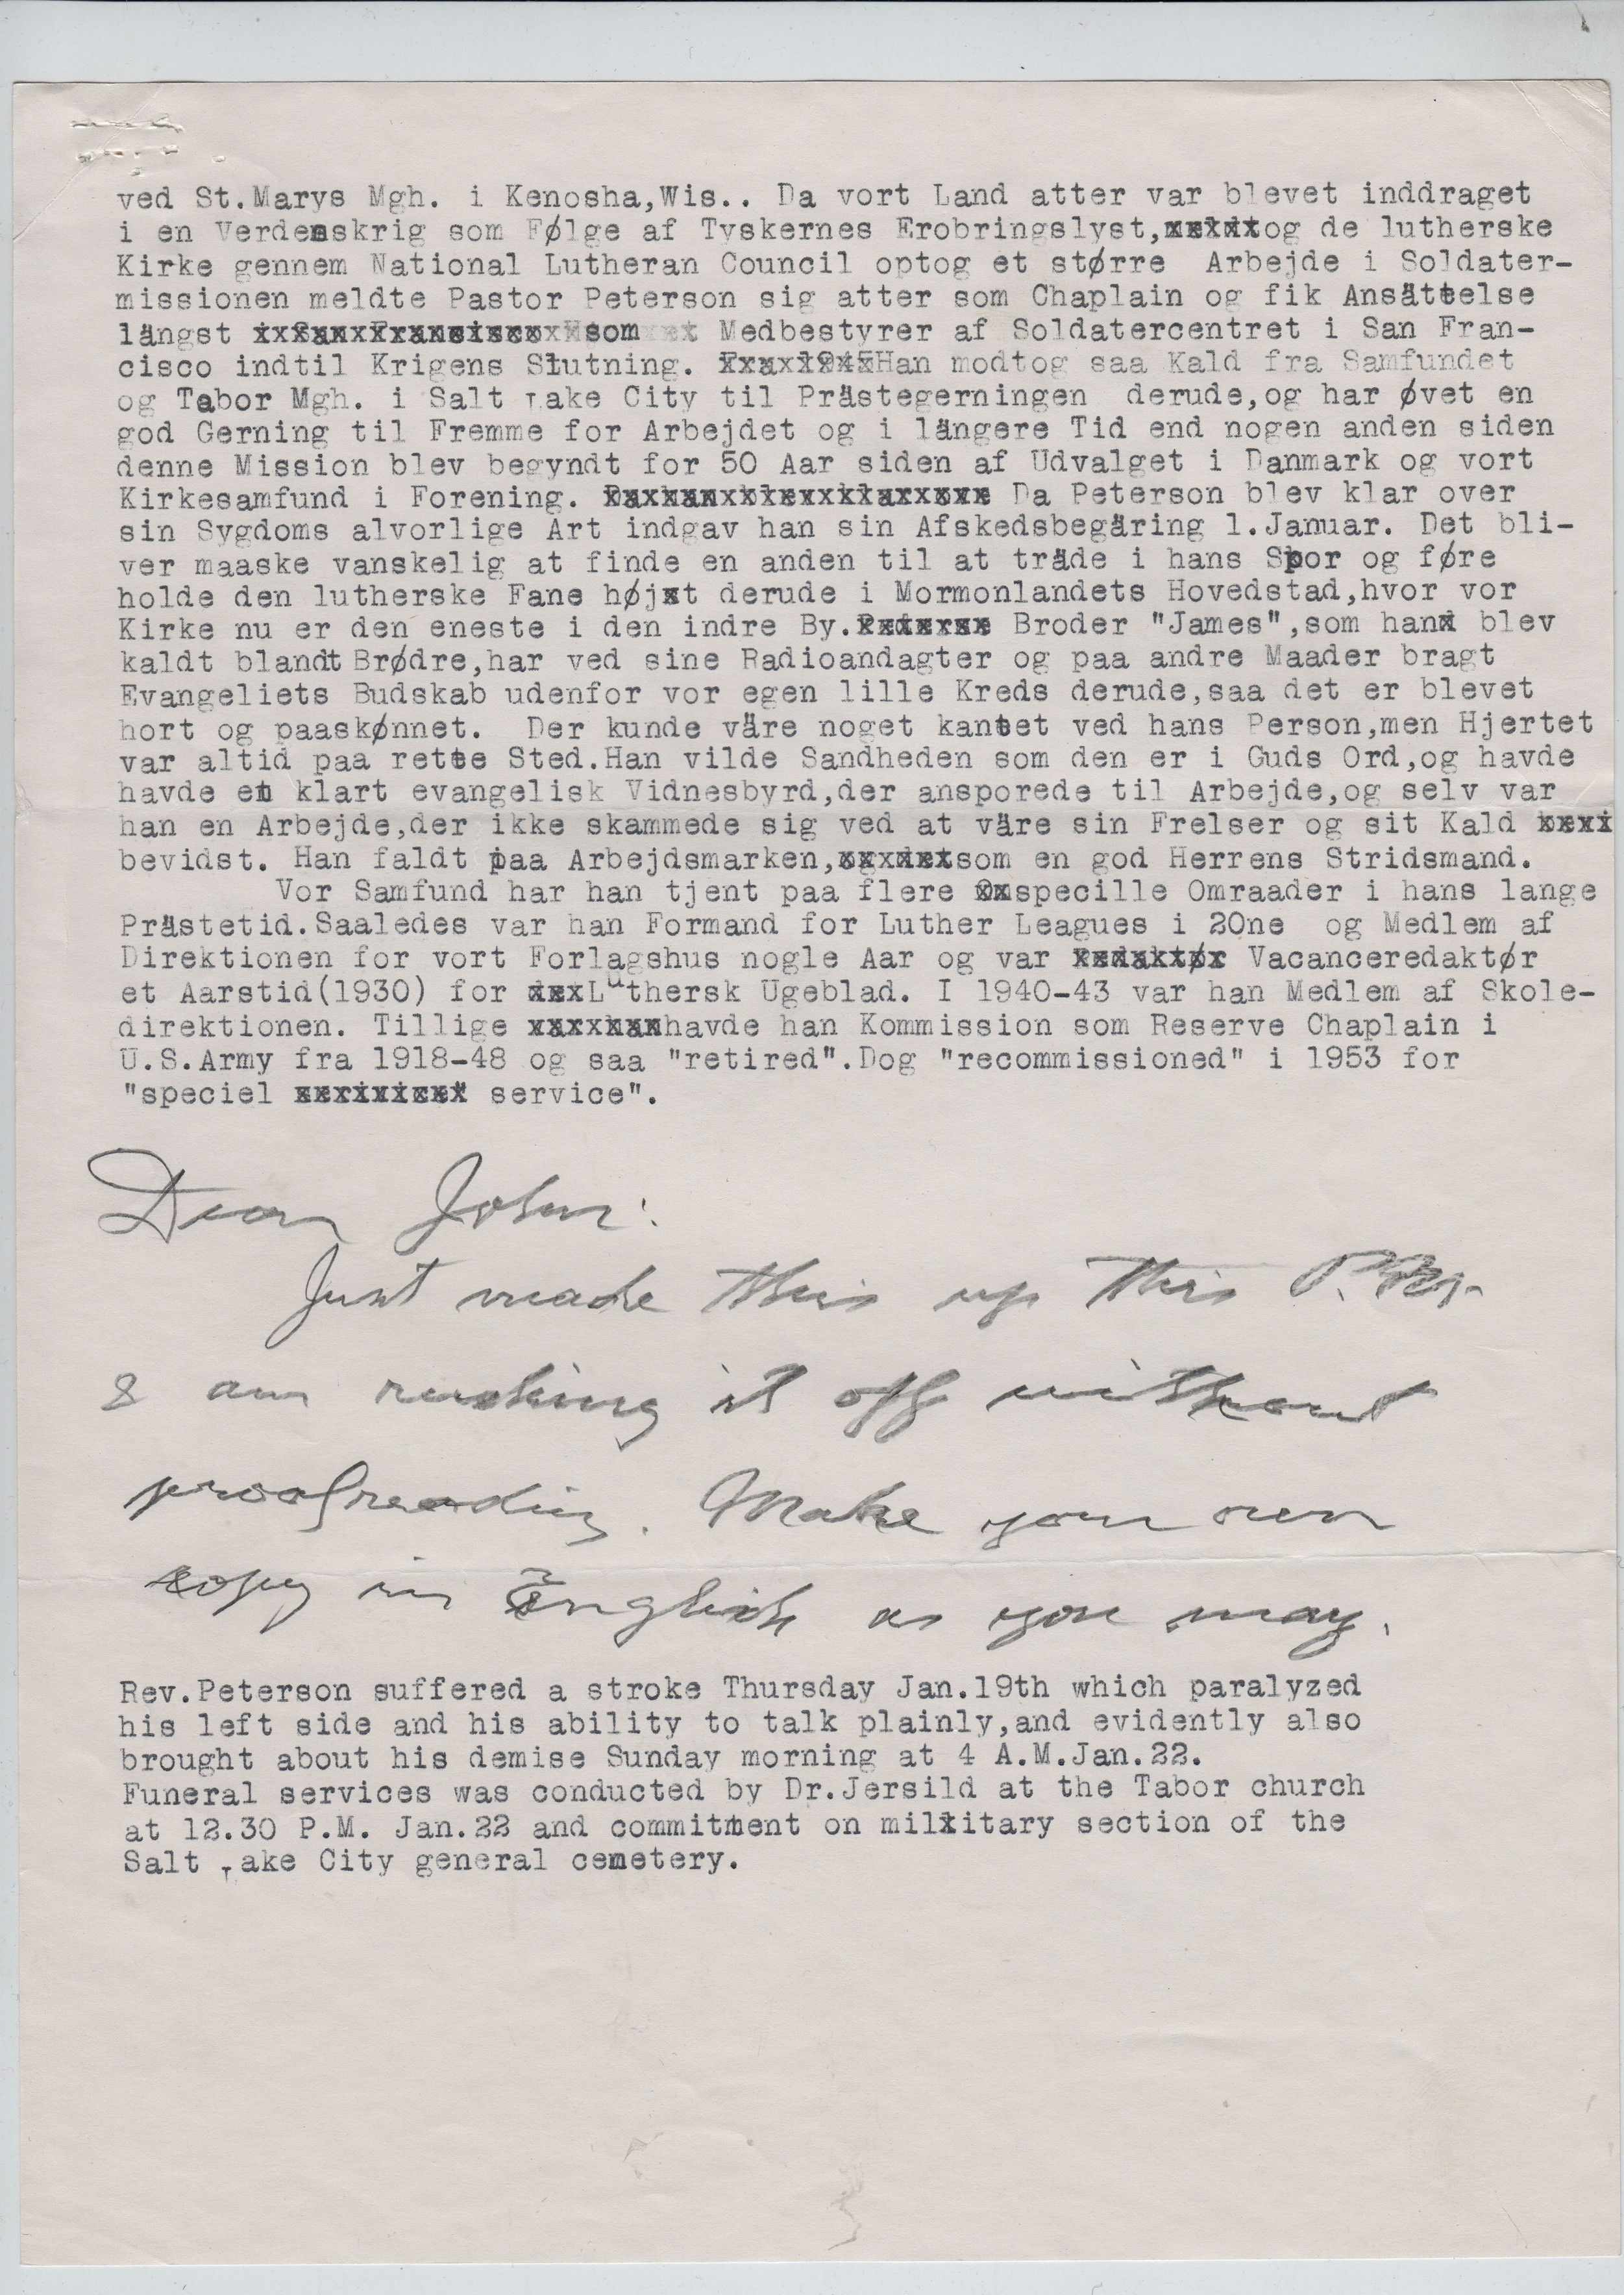 ved St.Marys Mgh. i Kenosha,Wis.. Da vort Land atter var blevet inddraget
i en Verdenskrig som Følge af Tyskernes Erobringslyst, og de lutherske
Kirke gennem National Lutheran Council optog et større Arbejde i Soldater-
missionen meldte Pastor Peterson sig atter som Chaplain og fik Ansättelse
längst som Medbestyrer af Soldatercentret i San Fran-
cisco indtil Krigens Slutning. Han modtog saa Kald fra Samfundet
og Tabor Mgh. i Salt Lake City til Prästegerningen derude,og har øvet en
god Gerning til Fremme for Arbejdet og i längere Tid end nogen anden siden
denne Mission blev begyndt for 50 Aar siden af Udvalget i Danmark og vort
Kirkesamfund i Forening. Da Peterson blev klar over
sin Sygdoms alvorlige Art indgav han sin Afskedsbegäring 1.Januar. Det bli-
ver maaske vanskelig at finde en anden til at träde i hans Spor og føre
holde den lutherske Fane højt derude i Mormonlandets Hovedstad,hvor vor
Kirke nu er den eneste i den indre By. Broder "James",som han blev
kaldt blandt Brødre,har ved sine Radioandagter og paa andre Maader bragt
Evangeliets Budskab udenfor vor egen lille Kreds derude,saa det er blevet
hort og paaskønnet. Der kunde väre noget kantet ved hans Person,men Hjertet
var altid paa rette Sted.Han vilde Sandheden som den er i Guds Ord,og havde
havde et klart evangelisk Vidnesbyrd,der ansporede til Arbejde,og selv var
han en Arbejde,der ikke skammede sig ved at väre sin Frelser og sit Kald
bevidst. Han faldt paa Arbejdsmarken, som en god Herrens Stridsmand.
Vor Samfund har han tjent paa flere specille Omraader i hans lange
Prästetid.Saaledes var han Formand for Luther Leagues i 20ne og Medlem af
Direktionen for vort Forlagshus nogle Aar og var Vacanceredaktør
et Aarstid(1930) for Luthersk Ugeblad. I 1940-43 var han Medlem af Skole-
direktionen. Tillige havde han Kommission som Reserve Chaplain i
U.S.Army fra 1918-48 og saa "retired".Dog "recommissioned" i 1953 for
"speciel service".
Dear John:
Just made this up this P.M.
& am rushing it off without
proofreading. Make your own
copy in English as you may.
Rev.Peterson suffered a stroke Thursday Jan.19th which paralyzed
his left side and his ability to talk plainly,and evidently also
brought about his demise Sunday morning at 4 A.M.Jan.22.
Funeral services was conducted by Dr.Jersild at the Tabor church
at 12.30 P.M. Jan.22 and commitment on military section of the
Salt Lake City general cemetery.